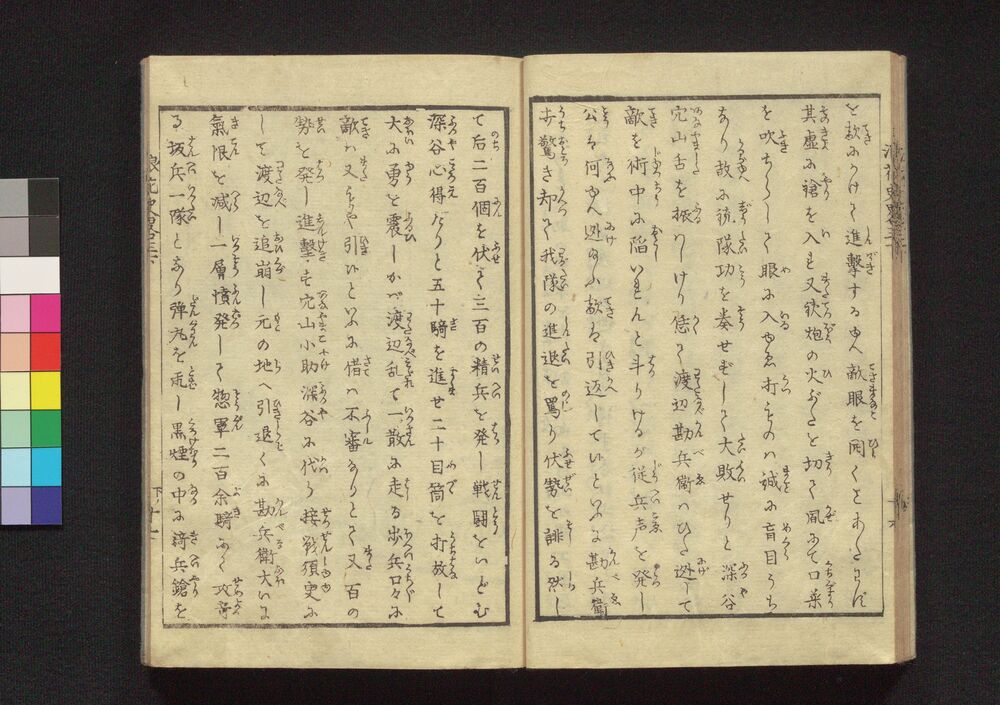 を数多かけて進撃するゆへ敵眼を開くをあたはず
其虚に鎗を入も又鉄炮の火ぶたを切て風にて口薬
を吹ちらして眼に入やゑ打ものは誠に盲目うち
あり故に後隊功を奏せずして大敗せりと深谷
穴山舌を振ひけり偖て渡辺勘兵衛はひた逃して
敵を術中に陥いれんと斗りけるが従兵声を発し
公は何ゆへ逃給ふ敵は引返していといふに勘兵衛
歩驚き却て我隊の進退を罵り伏勢を誹る然し
て后二百個を伏て三百の精兵を発し戦闘をいどむ
深谷心得たりと五十騎を進せ二十目筒を打放して
大に勇を震しかば渡辺乱て一散に走る出兵口々に
敵は又もや引ひといふに偖は不審なりとて又百の
勢を発し進撃も穴山小助深谷に代り接戦須臾に
して渡辺を追崩し元の地へ引退くに勘兵衛大いに
気限を減し一層憤発して惣軍二百余騎にて攻寄
る坂兵一隊となり弾丸を雨し黒煙の中に綺兵鎗を
下ノ十一